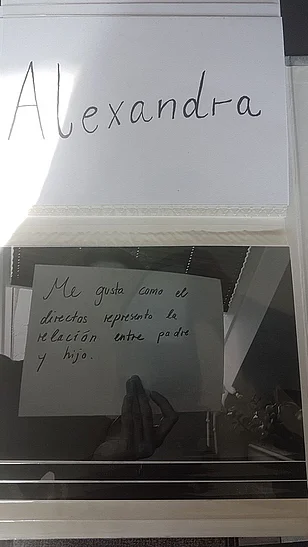 Alexandra
Me gusta como el
directos represento la
relación entre padre
y hijo.